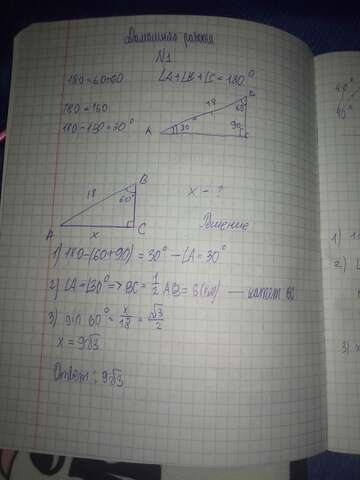 Домашняя работа
N1
180-60+90
∠A+∠B+∠C=180°
180-150
180-150=30°
18
B
60°
A
30°
90
C
B
18
60°
x - ?
A
x
C
Решение
1) 180-(60+90)=30° - ∠A=30°
2) ∠A=∠30° => BC = 1/2 AB = 6(см) — катет BC
3) sin 60° = x/18 = √3/2
x = 9√3
Ответ: 9√3
1)
2)
3)